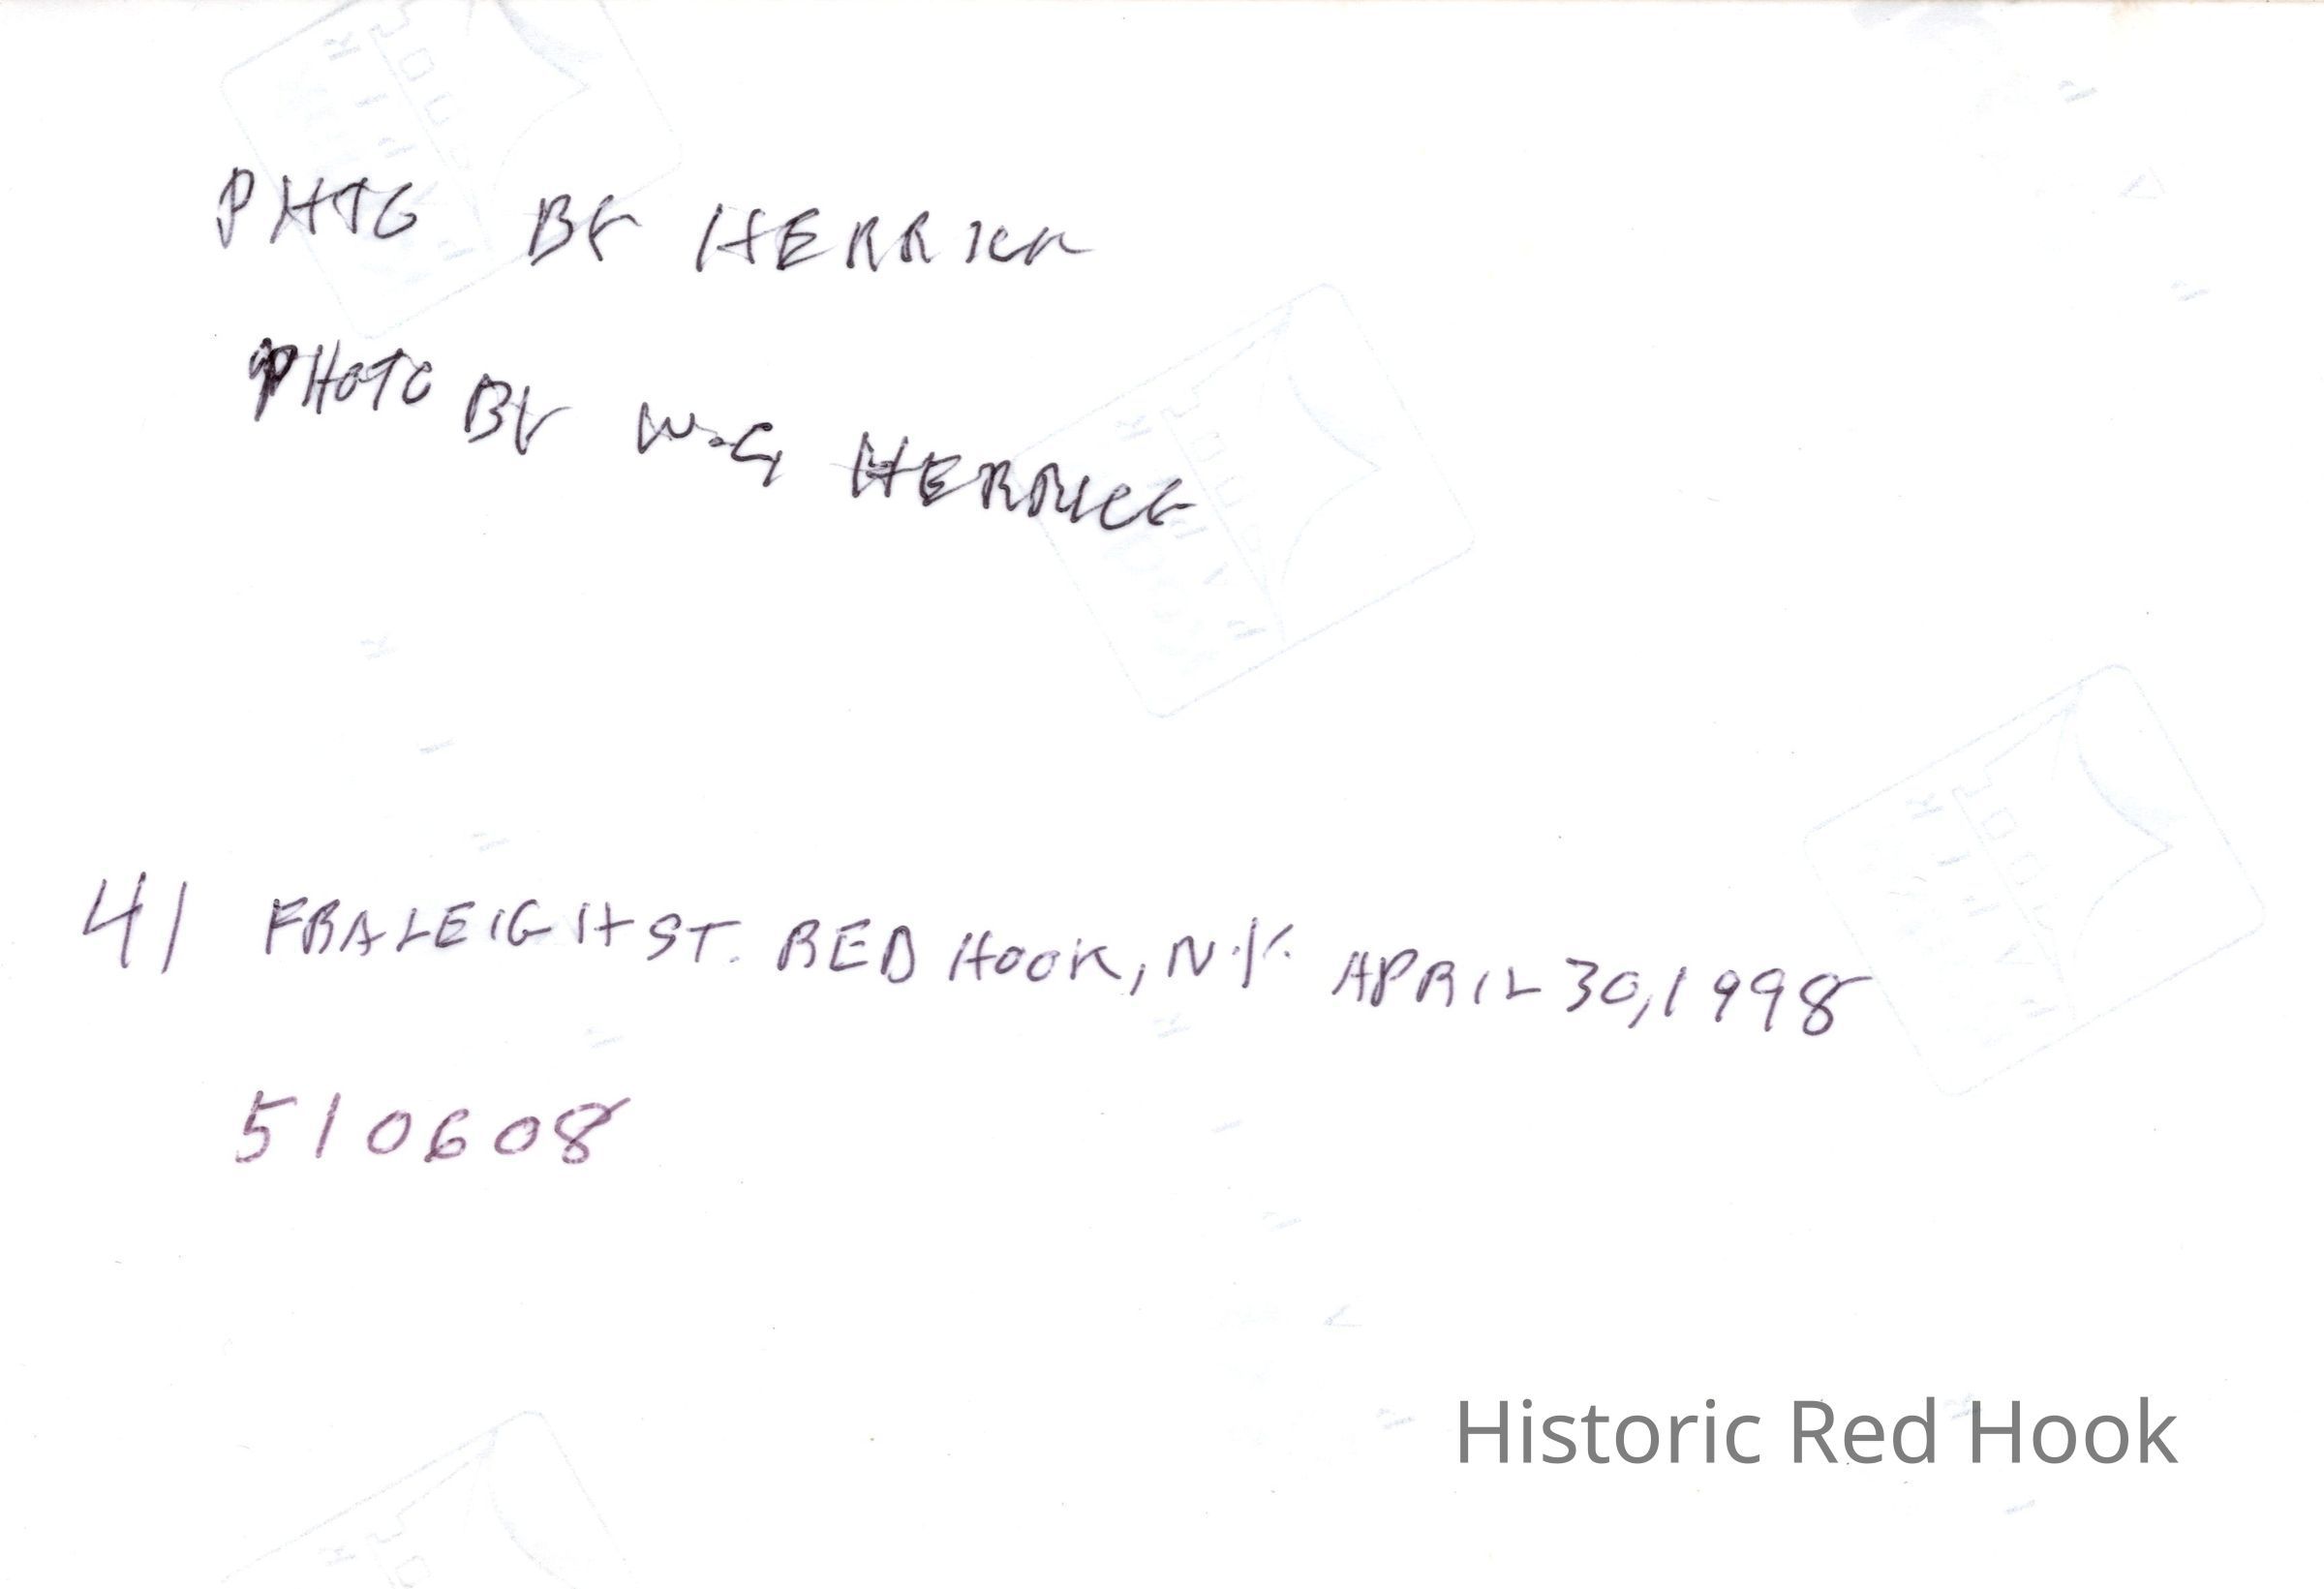 PHTO BY HERRICK
PHOTO BY W.G HERRICK
41 FRALEIGH ST. RED HOOK, N.Y. APRIL 30, 1998
510608
Historic Red Hook